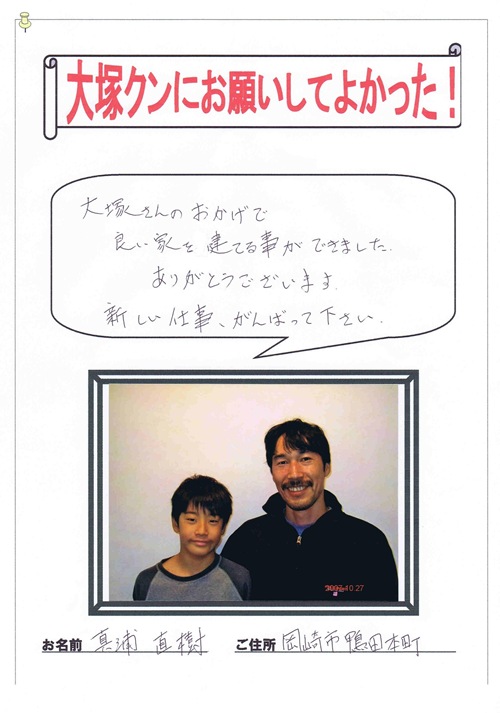 大塚クンにお願いしてよかった！
大塚さんのおかげで
良い家を建てる事ができました.
ありがとうございます.
新しい仕事、がんばって下さい.
お名前 真浦 直樹 ご住所 岡崎市鴨田本町